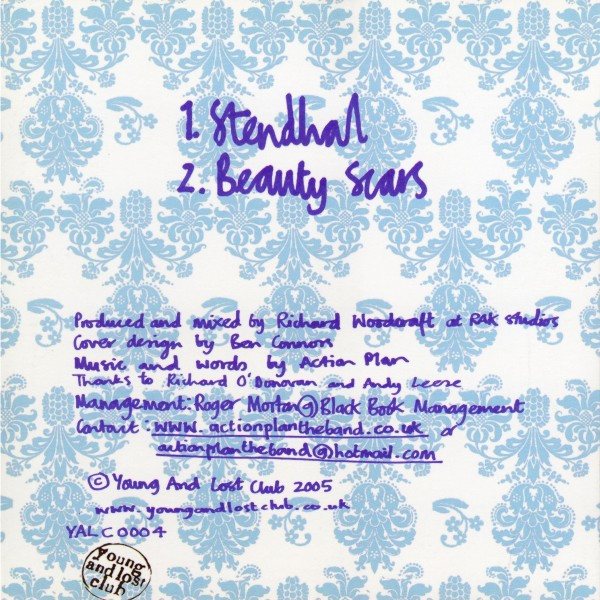 1. Stendhal
2. Beauty Scars
Produced and mixed by Richard Woodcraft at RAK Studios
Cover design by Ben Connor
Music and words by Action Plan
Thanks to Richard O'Donovan and Andy Leese
Management: Roger Morton @ Black Book Management
Contact: www.actionplantheband.co.uk or
actionplantheband@hotmail.com
© Young And Lost Club 2005
www.youngandlostclub.co.uk
YALC0004
young
and lost
club